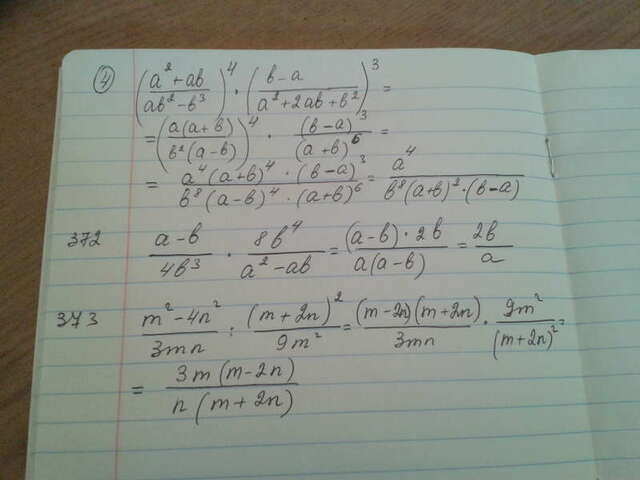 ④ ((a² + ab)/(ab² - b³))⁴ · ((b - a)/(a² + 2ab + b²))³ =
= ((a(a + b))/(b²(a - b)))⁴ · (b - a)³/(a + b)⁶ =
= (a⁴(a + b)⁴ · (b - a)³)/(b⁸(a - b)⁴ · (a + b)⁶) = a⁴/(b⁸(a + b)² · (b - a))
372 (a - b)/(4b³) · (8b⁴)/(a² - ab) = ((a - b) · 2b)/(a(a - b)) = 2b/a
373 (m² - 4n²)/(3mn) : ((m + 2n)²)/(9m²) = ((m - 2n)(m + 2n))/(3mn) · (9m²)/((m + 2n)²) =
= (3m(m - 2n))/(n(m + 2n))